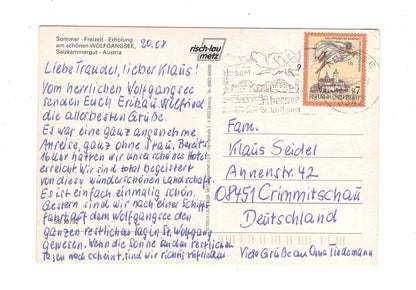 Sommer - Freizeit - Erholung
am schönen WOLFGANGSEE,
Salzkammergut - Austria
20.08.
risch-lau
metz
Liebe Traudel, lieber Klaus!
Vom herrlichen Wolfgangsee
senden Euch Erika u. Wilfried
die allerbesten Grüße.
Es war eine ganz angenehme
Anreise, ganz ohne Stau. Bereits
hatten wir unser schönes Hotel
erreicht. Wir sind total begeistert
von dieser wunderschönen Landschaft.
Es ist einfach einmalig schön.
Gestern sind wir nach einer Schiff-
fahrt auf dem Wolfgangsee den
ganzen restlichen Tag in St. Wolfgang
gewesen. Wenn die Sonne an den restlichen
Tagen noch scheint, sind wir richtig zufrieden.
Abersee
St. Wolfgang
REPUBLIK ÖSTERREICH
S7
Fam.
Klaus Seidel
Annenstr. 42
08451 Crimmitschau
Deutschland
Viele Grüße an Oma Tiedemann